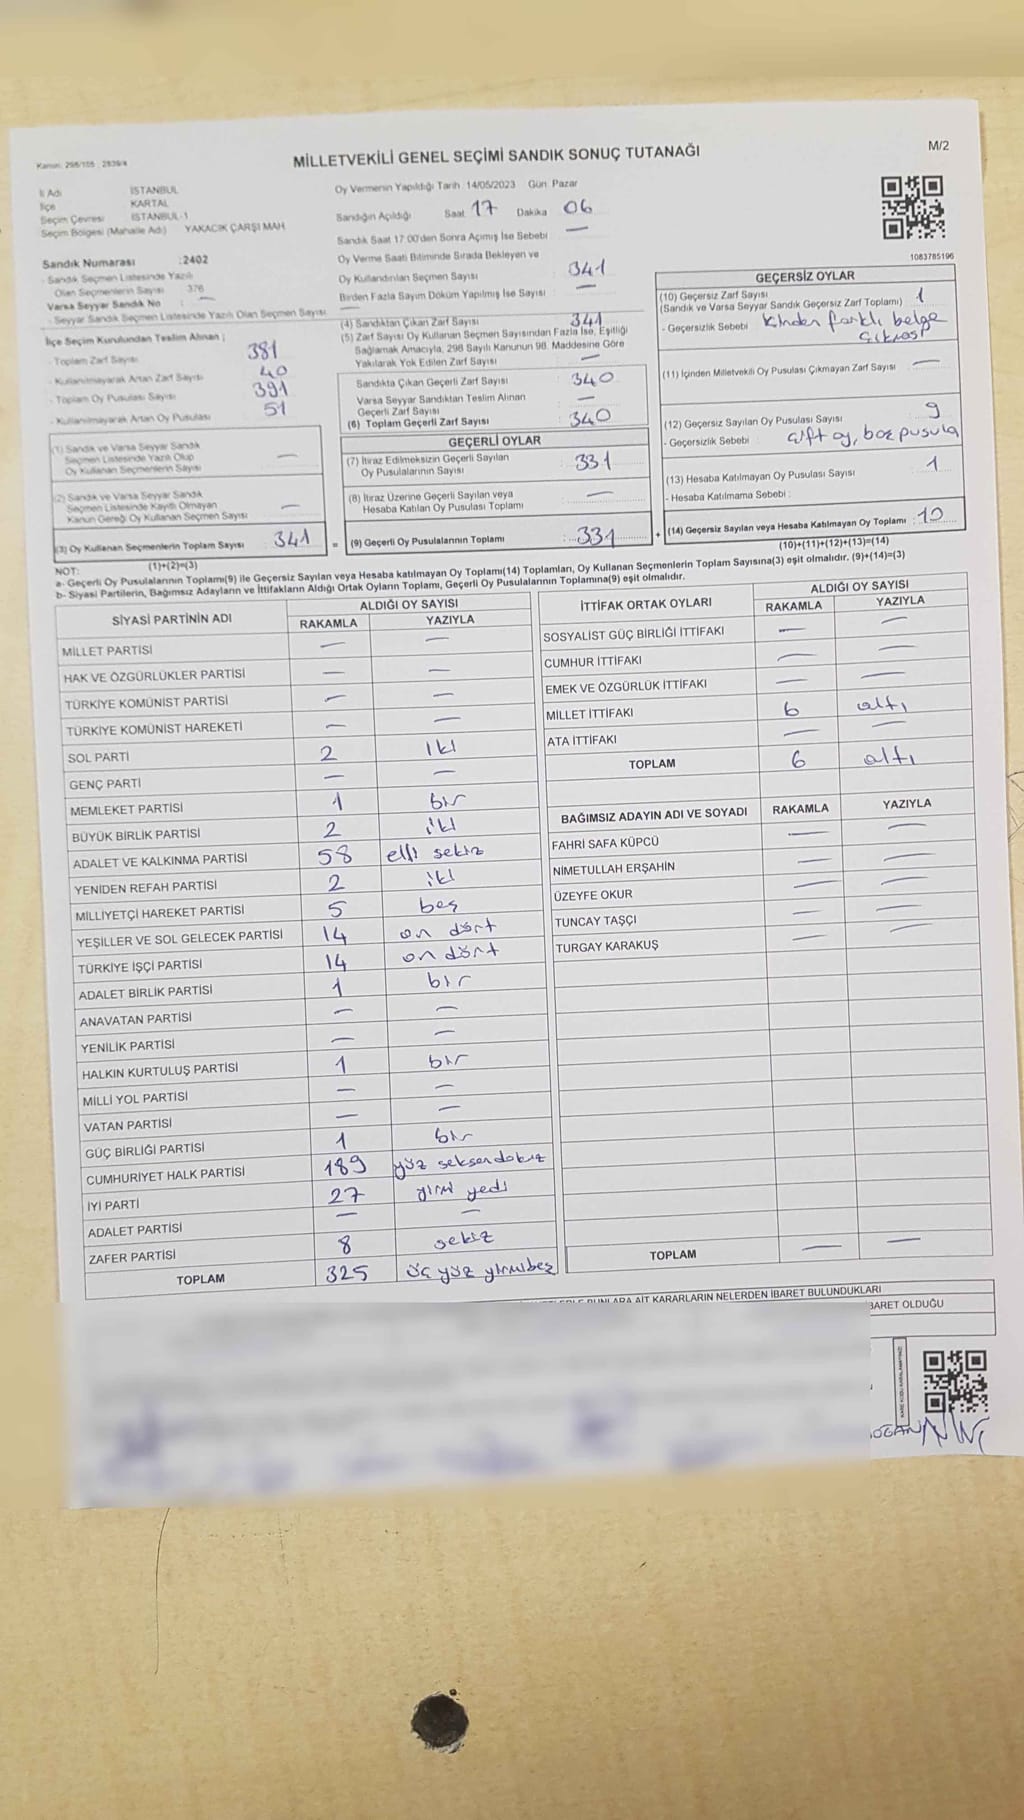 Kanun: 298/105 2839/4
MİLLETVEKİLİ GENEL SEÇİMİ SANDIK SONUÇ TUTANAĞI
M/2
İl Adı İSTANBUL
İlçe KARTAL
Seçim Çevresi İSTANBUL-1
Seçim Bölgesi (Mahalle Adı) YAKACIK ÇARŞI MAH
Sandık Numarası :2402
- Sandık Seçmen Listesinde Yazılı
Olan Seçmenlerin Sayısı 376
Varsa Seyyar Sandık No : —
- Seyyar Sandık Seçmen Listesinde Yazılı Olan Seçmen Sayısı —
İlçe Seçim Kurulundan Teslim Alınan ;
- Toplam Zarf Sayısı 381
- Kullanılmayarak Artan Zarf Sayısı 40
- Toplam Oy Pusulası Sayısı 391
- Kullanılmayarak Artan Oy Pusulası 51
(1) Sandık ve Varsa Seyyar Sandık
Seçmen Listesinde Yazılı Olup
Oy Kullanan Seçmenlerin Sayısı —
(2) Sandık ve Varsa Seyyar Sandık
Seçmen Listesinde Kayıtlı Olmayan
Kanun Gereği Oy Kullanan Seçmen Sayısı —
(3) Oy Kullanan Seçmenlerin Toplam Sayısı 341
(1)+(2)=(3)
Oy Vermenin Yapıldığı Tarih :14/05/2023 Gün: Pazar
Sandığın Açıldığı Saat 17 Dakika 06
Sandık Saat 17:00'den Sonra Açımış İse Sebebi —
Oy Verme Saati Bitiminde Sırada Bekleyen ve
Oy Kullandırılan Seçmen Sayısı 341
Birden Fazla Sayım Döküm Yapılmış İse Sayısı : —
(4) Sandıktan Çıkan Zarf Sayısı 341
(5) Zarf Sayısı Oy Kullanan Seçmen Sayısından Fazla İse, Eşitliği
Sağlamak Amacıyla, 298 Sayılı Kanunun 98. Maddesine Göre
Yakılarak Yok Edilen Zarf Sayısı —
Sandıkta Çıkan Geçerli Zarf Sayısı 340
Varsa Seyyar Sandıktan Teslim Alınan
Geçerli Zarf Sayısı —
(6) Toplam Geçerli Zarf Sayısı 340
GEÇERLİ OYLAR
(7) İtiraz Edilmeksizin Geçerli Sayılan
Oy Pusulalarının Sayısı : 331
(8) İtiraz Üzerine Geçerli Sayılan veya
Hesaba Katılan Oy Pusulası Toplamı —
= (9) Geçerli Oy Pusulalarının Toplamı : 331 +
1083785196
GEÇERSİZ OYLAR
(10) Geçersiz Zarf Sayısı
(Sandık ve Varsa Seyyar Sandık Geçersiz Zarf Toplamı) 1
- Geçersizlik Sebebi : içinden farklı belge
çıkması
(11) İçinden Milletvekili Oy Pusulası Çıkmayan Zarf Sayısı —
(12) Geçersiz Sayılan Oy Pusulası Sayısı 9
- Geçersizlik Sebebi : çift oy, boş pusula
(13) Hesaba Katılmayan Oy Pusulası Sayısı 1
- Hesaba Katılmama Sebebi :
(14) Geçersiz Sayılan veya Hesaba Katılmayan Oy Toplamı : 10
(10)+(11)+(12)+(13)=(14)
NOT:
a- Geçerli Oy Pusulalarının Toplamı(9) ile Geçersiz Sayılan veya Hesaba katılmayan Oy Toplamı(14) Toplamları, Oy Kullanan Seçmenlerin Toplam Sayısına(3) eşit olmalıdır. (9)+(14)=(3)
b- Siyasi Partilerin, Bağımsız Adayların ve İttifakların Aldığı Ortak Oyların Toplamı, Geçerli Oy Pusulalarının Toplamına(9) eşit olmalıdır.
SİYASİ PARTİNİN ADI ALDIĞI OY SAYISI
RAKAMLA YAZIYLA
MİLLET PARTİSİ — —
HAK VE ÖZGÜRLÜKLER PARTİSİ — —
TÜRKİYE KOMÜNİST PARTİSİ — —
TÜRKİYE KOMÜNİST HAREKETİ — —
SOL PARTİ 2 iki
GENÇ PARTİ — —
MEMLEKET PARTİSİ 1 bir
BÜYÜK BİRLİK PARTİSİ 2 iki
ADALET VE KALKINMA PARTİSİ 58 elli sekiz
YENİDEN REFAH PARTİSİ 2 iki
MİLLİYETÇİ HAREKET PARTİSİ 5 beş
YEŞİLLER VE SOL GELECEK PARTİSİ 14 on dört
TÜRKİYE İŞÇİ PARTİSİ 14 on dört
ADALET BİRLİK PARTİSİ 1 bir
ANAVATAN PARTİSİ — —
YENİLİK PARTİSİ — —
HALKIN KURTULUŞ PARTİSİ 1 bir
MİLLİ YOL PARTİSİ — —
VATAN PARTİSİ — —
GÜÇ BİRLİĞİ PARTİSİ 1 bir
CUMHURİYET HALK PARTİSİ 189 yüz seksen dokuz
İYİ PARTİ 27 yirmi yedi
ADALET PARTİSİ — —
ZAFER PARTİSİ 8 sekiz
TOPLAM 325 üç yüz yirmi beş
İTTİFAK ORTAK OYLARI ALDIĞI OY SAYISI
RAKAMLA YAZIYLA
SOSYALİST GÜÇ BİRLİĞİ İTTİFAKI — —
CUMHUR İTTİFAKI — —
EMEK VE ÖZGÜRLÜK İTTİFAKI — —
MİLLET İTTİFAKI 6 altı
ATA İTTİFAKI — —
TOPLAM 6 altı
BAĞIMSIZ ADAYIN ADI VE SOYADI RAKAMLA YAZIYLA
FAHRİ SAFA KÜPCÜ — —
NİMETULLAH ERŞAHİN — —
ÜZEYFE OKUR — —
TUNCAY TAŞÇI — —
TURGAY KARAKUŞ — —
TOPLAM — —
BUNLARA AİT KARARLARIN NELERDEN İBARET BULUNDUKLARI
İBARET OLDUĞU